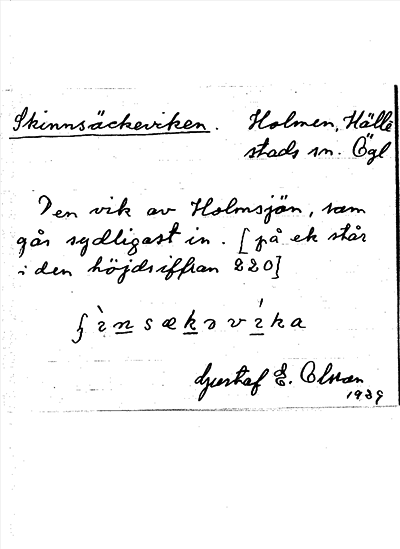 Skinnsäckeviken. Holmen, Hälle
stads sn. Ögl
Den vik av Holmsjön, som
går sydligast in. [på ek står
i den höjdsiffran 220]
Gustaf E. Olsson
1939